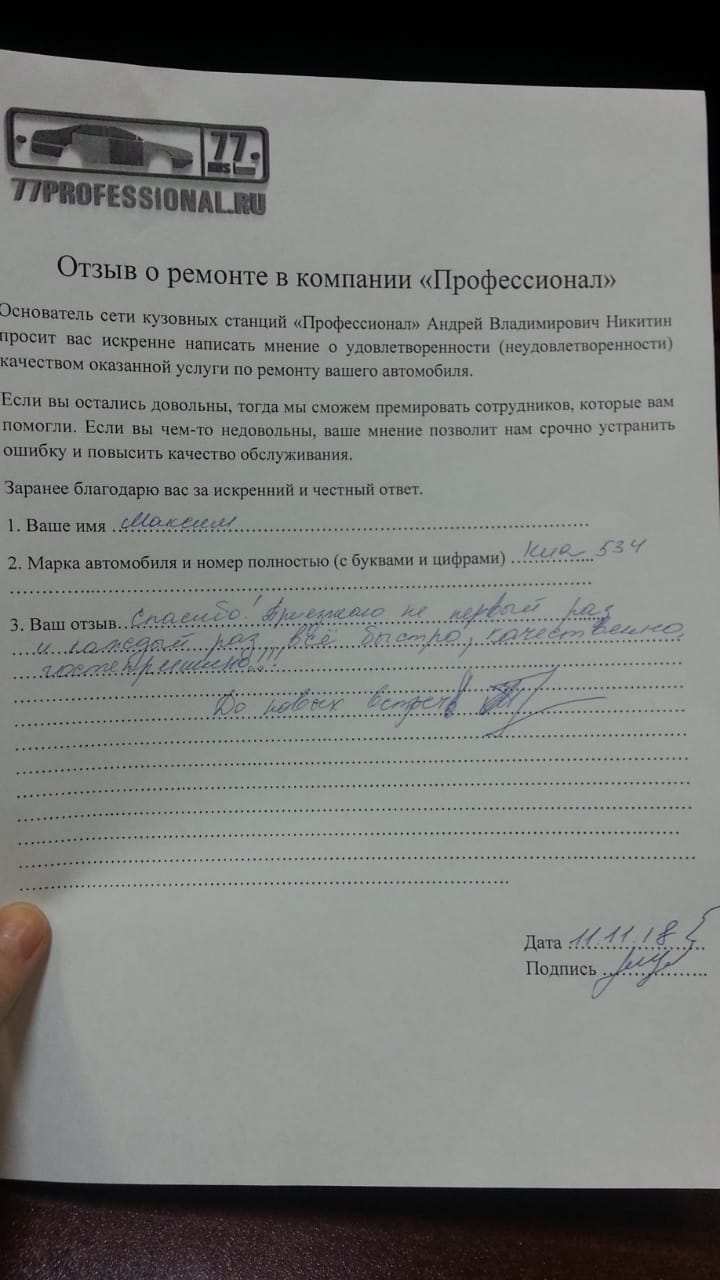 77
RUS
77PROFESSIONAL.RU
Отзыв о ремонте в компании «Профессионал»
Основатель сети кузовных станций «Профессионал» Андрей Владимирович Никитин
просит вас искренне написать мнение о удовлетворенности (неудовлетворенности)
качеством оказанной услуги по ремонту вашего автомобиля.
Если вы остались довольны, тогда мы сможем премировать сотрудников, которые вам
помогли. Если вы чем-то недовольны, ваше мнение позволит нам срочно устранить
ошибку и повысить качество обслуживания.
Заранее благодарю вас за искренний и честный ответ.
1. Ваше имя Максим
2. Марка автомобиля и номер полностью (с буквами и цифрами) Киа 534
3. Ваш отзыв Спасибо! Приезжаю не первый раз
и каждый раз всё быстро, качественно,
гостеприимно!!!
До новых встреч!
Дата 11.11.18
Подпись